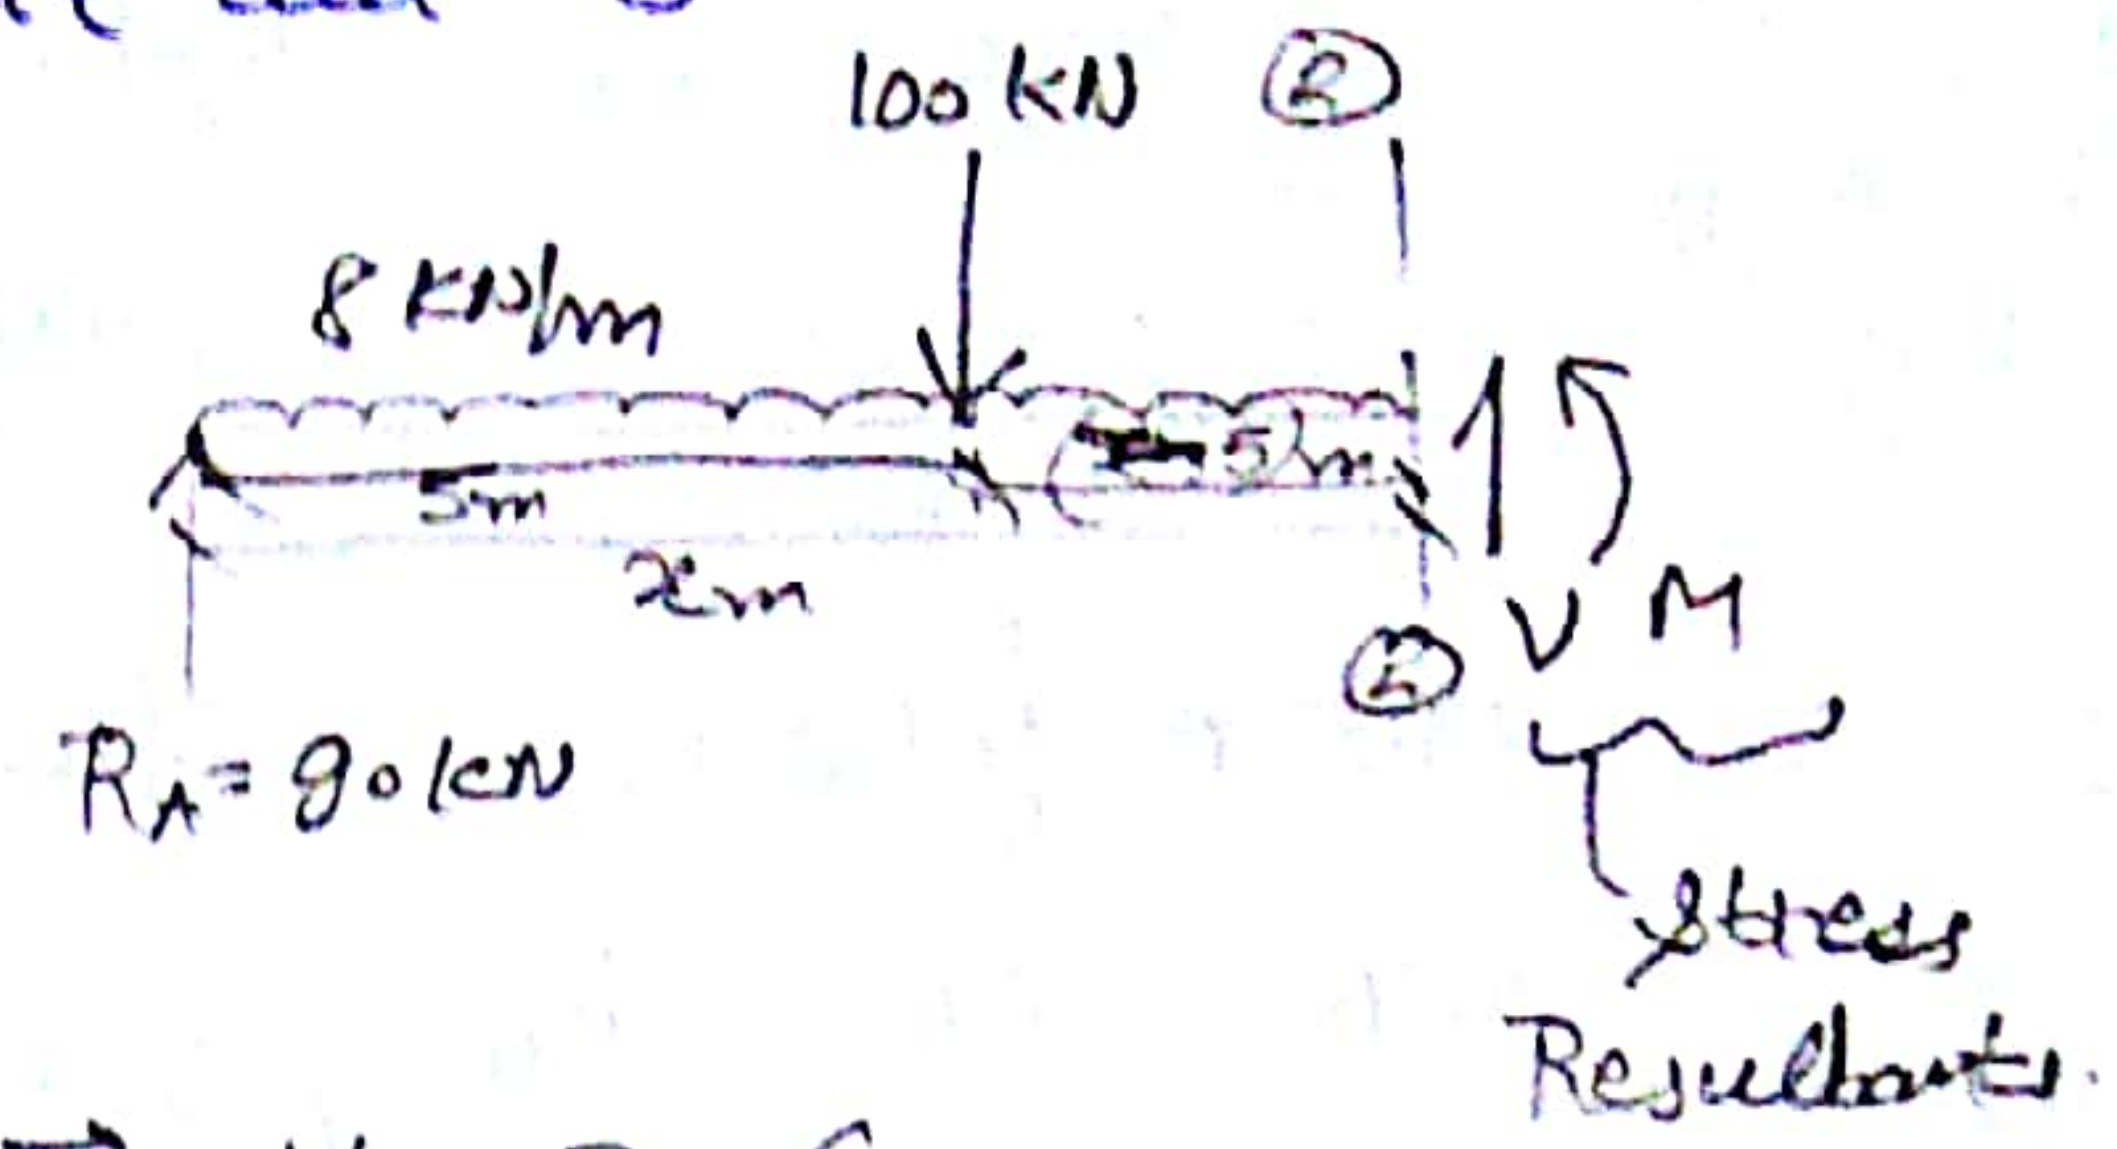 100 kN ②
8 KN/m
5m
5)m
xm
V M
②
R_A = 90 kN
Stress
Resultants.